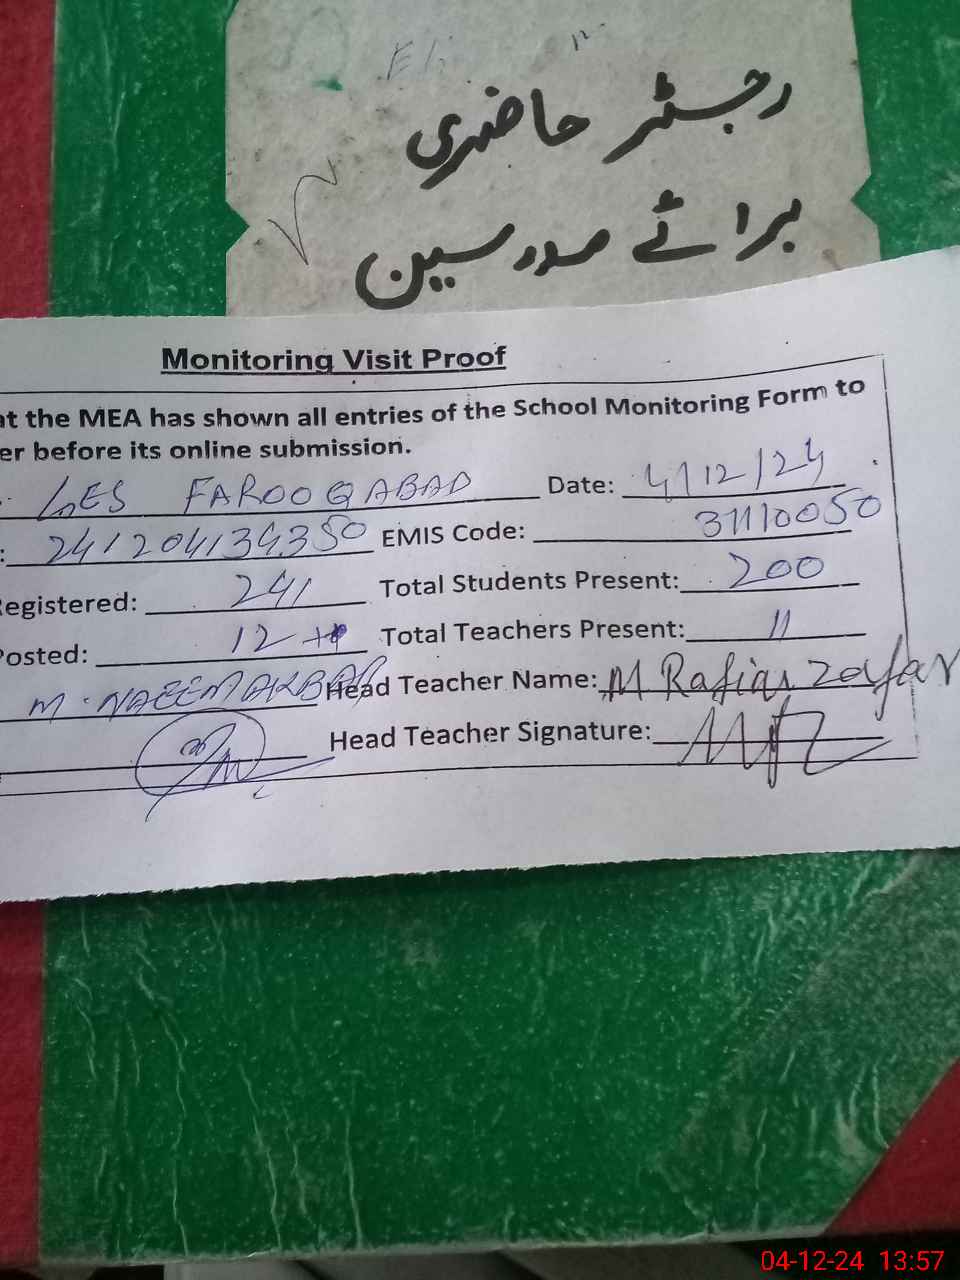 رجسٹر حاضری
برائے مدرسین
Monitoring Visit Proof
at the MEA has shown all entries of the School Monitoring Form to
er before its online submission.
GES FAROOQABAD Date: 4/12/24
: 241204134350 EMIS Code: 31110050
Registered: 241 Total Students Present: 200
Posted: 12 Total Teachers Present: 11
M. NAEEM AKBAR Head Teacher Name: M Rafiar Zafar
Head Teacher Signature:
04-12-24 13:57